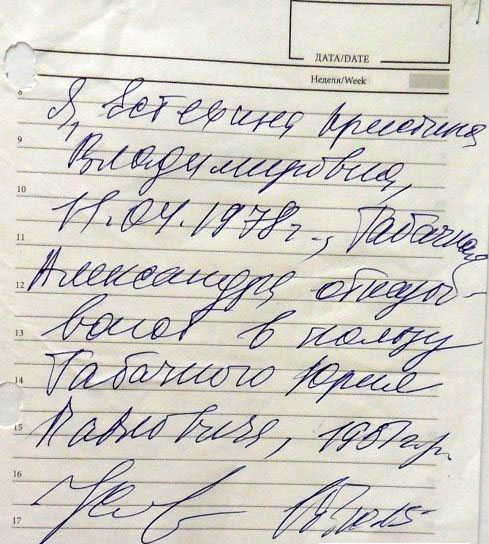 ДАТА/DATE
Неделя/Week
8
Я, Кристина
9
Владимировна,
10
11.04.1978г., Табачная
11
12
Александра отказы-
13
ваюсь в пользу
14
Табачного Юрия
15
Павловича, 1951г.р.
16
17